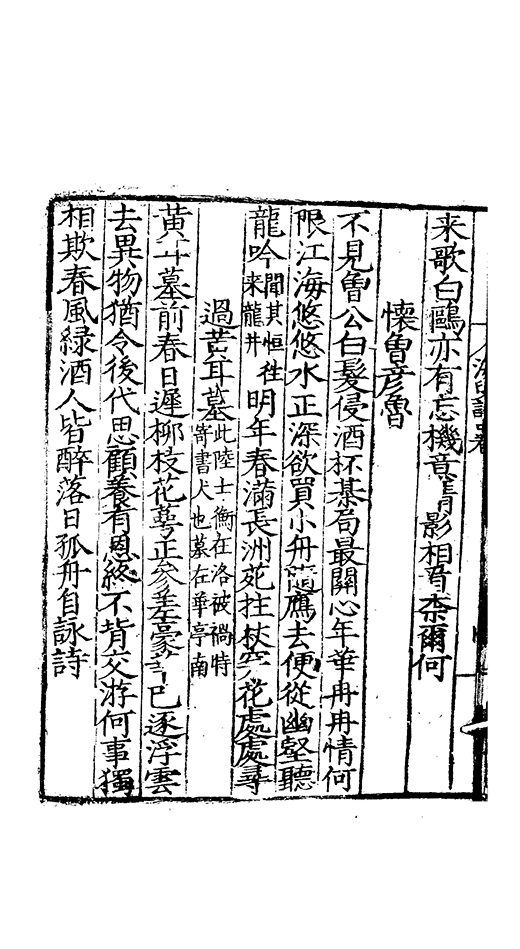 来歌白鷗亦有忘機意清影相看柰爾何
懷魯彦魯
不見魯公白髮侵酒杯棊局最關心年華冉冉情何
限江海悠悠水正深欲買小舟隨鷹去便從幽壑聽
龍吟聞其恒徃来龍井明年春滿長洲苑拄杖穿花處處尋
過黄耳墓此陸士衡在洛被禍特寄書犬也墓在華亭南
黄耳墓前春日遲柳枝花萼正參差豪華已逐浮雲
去異物猶令後代思顧養有恩終不背交游何事獨
相欺春風緑酒人皆醉落日孤舟自詠詩